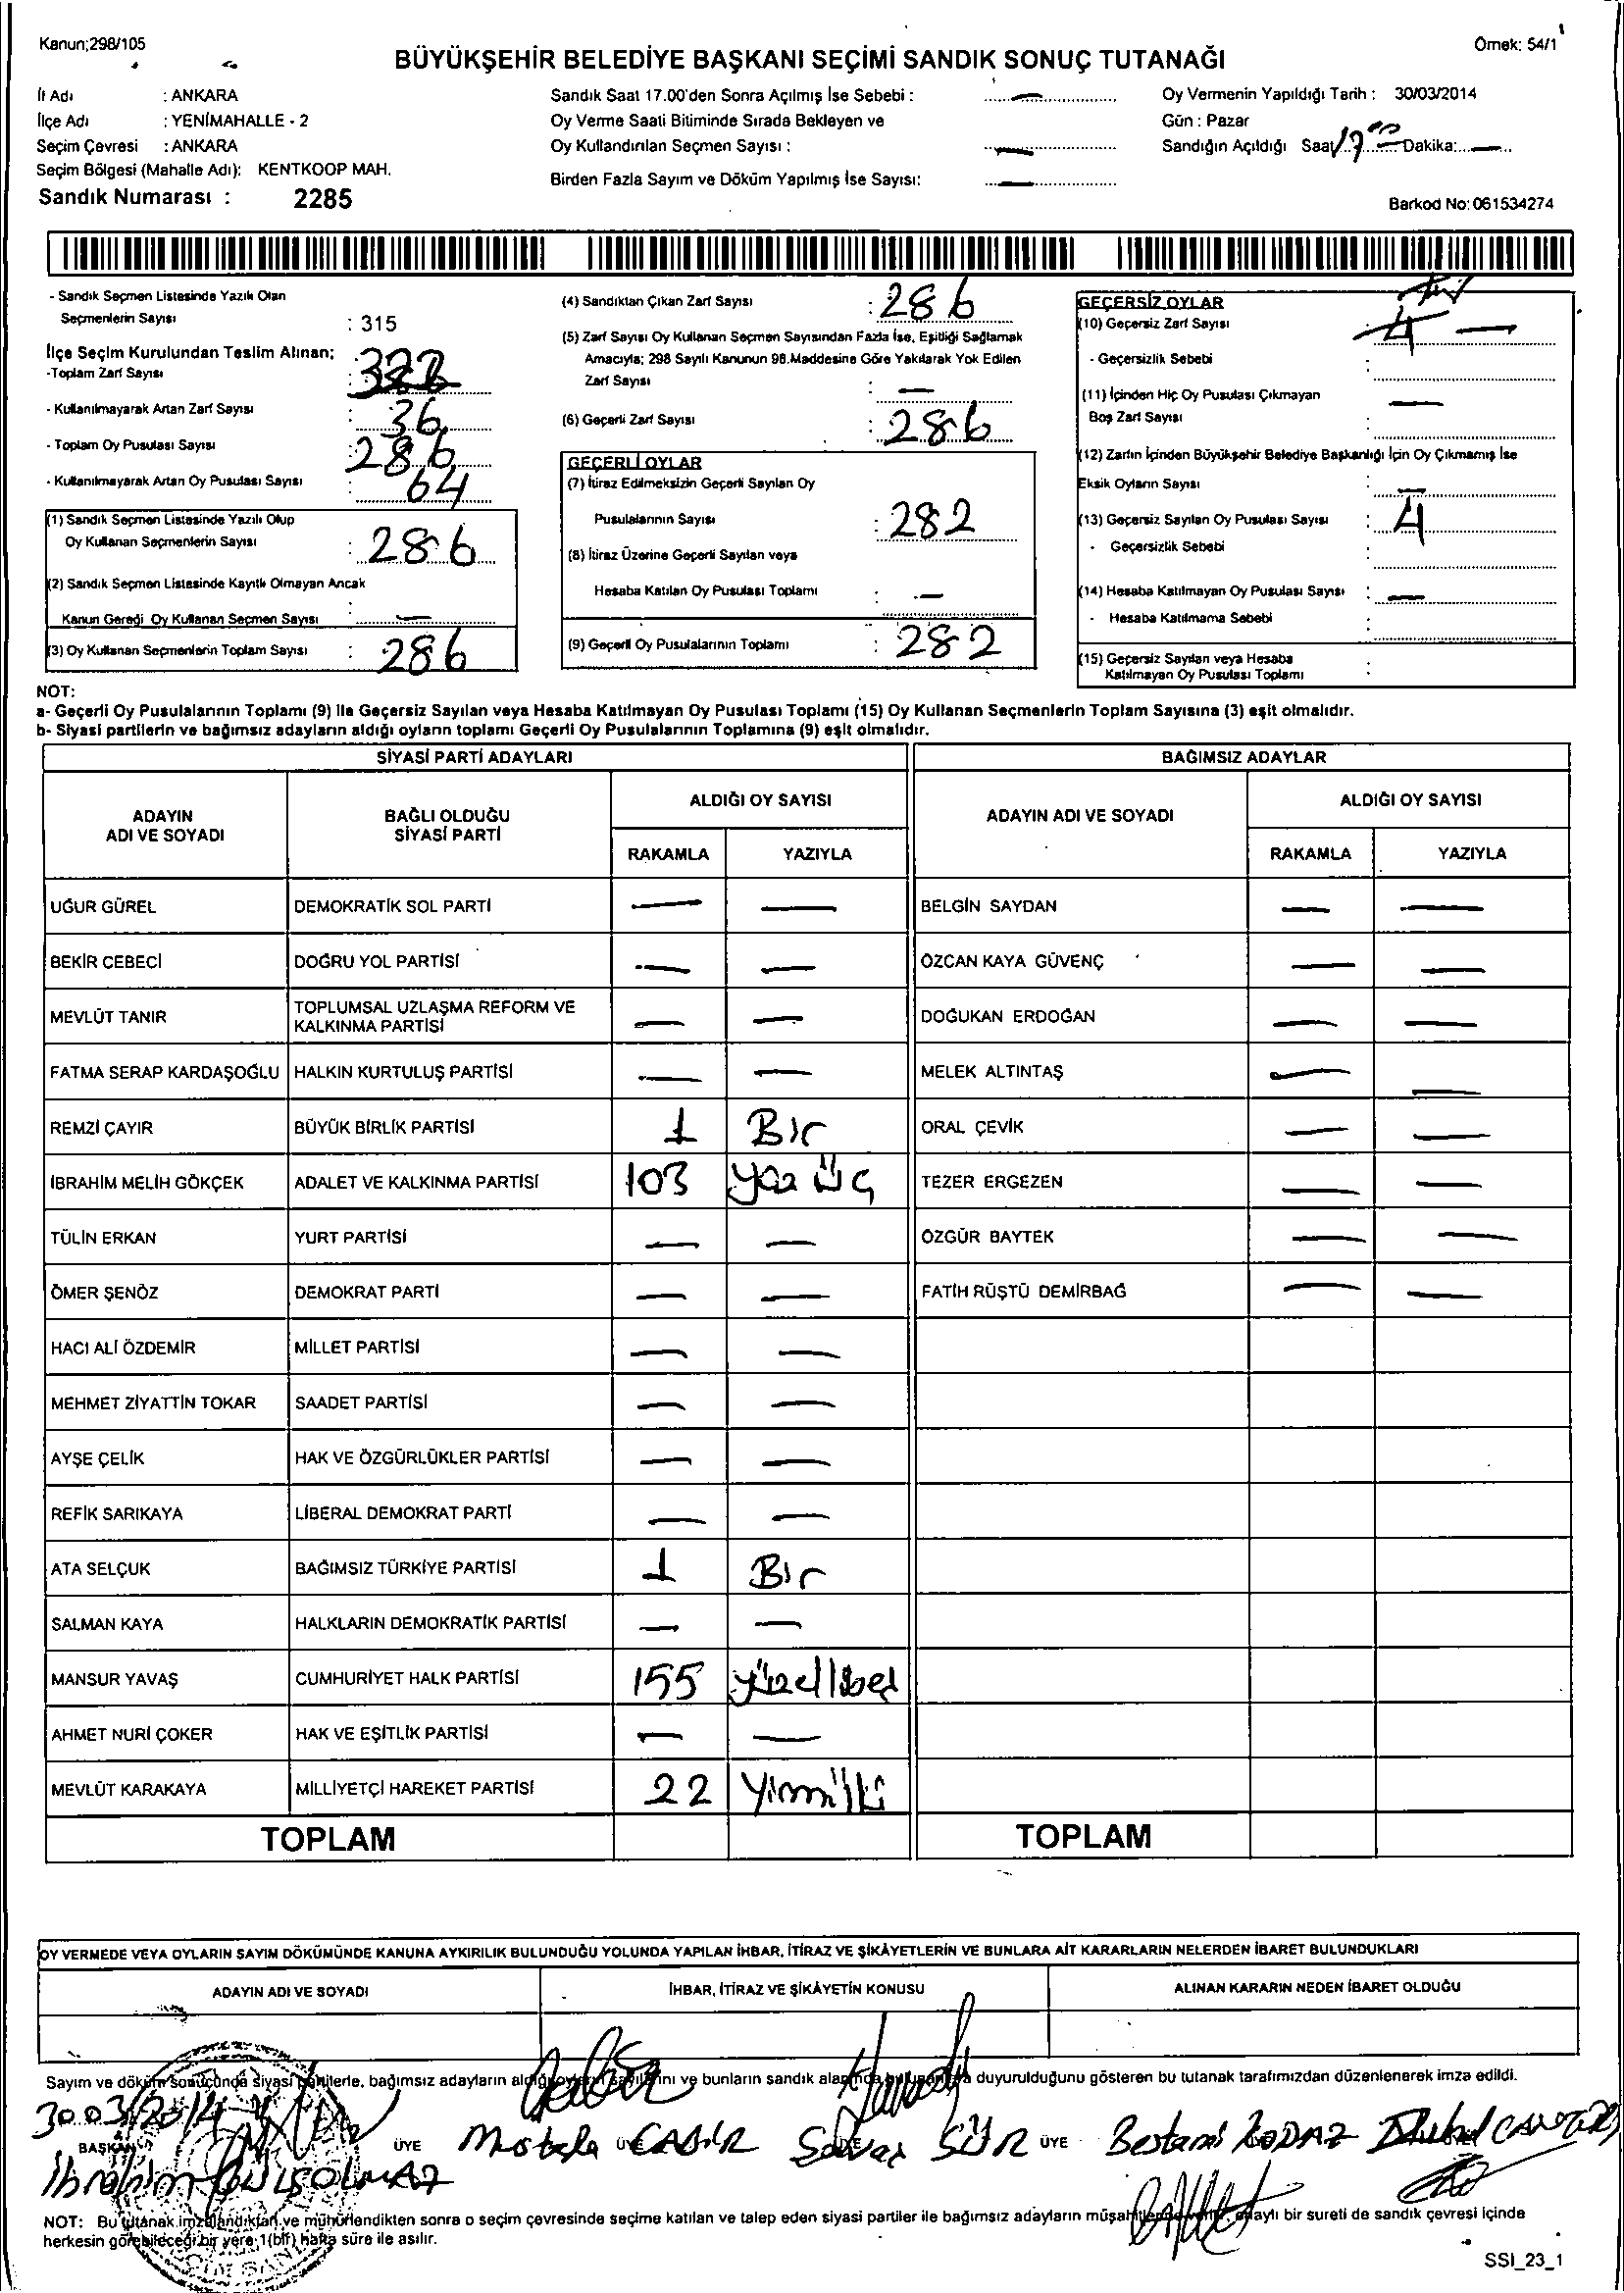 Kanun;298/105
Örnek: 54/1
BÜYÜKŞEHİR BELEDİYE BAŞKANI SEÇİMİ SANDIK SONUÇ TUTANAĞI
İl Adı : ANKARA
İlçe Adı : YENİMAHALLE - 2
Seçim Çevresi : ANKARA
Seçim Bölgesi (Mahalle Adı): KENTKOOP MAH.
Sandık Numarası : 2285
Sandık Saat 17.00'den Sonra Açılmış İse Sebebi : —
Oy Verme Saati Bitiminde Sırada Bekleyen ve
Oy Kullandırılan Seçmen Sayısı : —
Birden Fazla Sayım ve Döküm Yapılmış İse Sayısı: —
Oy Vermenin Yapıldığı Tarih : 30/03/2014
Gün : Pazar
Sandığın Açıldığı Saat 17 00 Dakika: —
Barkod No: 061534274
- Sandık Seçmen Listesinde Yazılı Olan
Seçmenlerin Sayısı : 315
İlçe Seçim Kurulundan Teslim Alınan;
-Toplam Zarf Sayısı :
- Kullanılmayarak Artan Zarf Sayısı : 36
- Toplam Oy Pusulası Sayısı : 286
- Kullanılmayarak Artan Oy Pusulası Sayısı : 64
(1) Sandık Seçmen Listesinde Yazılı Olup
Oy Kullanan Seçmenlerin Sayısı : 286
(2) Sandık Seçmen Listesinde Kayıtlı Olmayan Ancak
Kanun Gereği Oy Kullanan Seçmen Sayısı : —
(3) Oy Kullanan Seçmenlerin Toplam Sayısı : 286
(4) Sandıktan Çıkan Zarf Sayısı : 286
(5) Zarf Sayısı Oy Kullanan Seçmen Sayısından Fazla İse, Eşitliği Sağlamak
Amacıyla; 298 Sayılı Kanunun 98.Maddesine Göre Yakılarak Yok Edilen
Zarf Sayısı : —
(6) Geçerli Zarf Sayısı : 286
GEÇERLİ OYLAR
(7) İtiraz Edilmeksizin Geçerli Sayılan Oy
Pusulalarının Sayısı : 282
(8) İtiraz Üzerine Geçerli Sayılan veya
Hesaba Katılan Oy Pusulası Toplamı : —
(9) Geçerli Oy Pusulalarının Toplamı : 282
GEÇERSİZ OYLAR
(10) Geçersiz Zarf Sayısı 4 —
- Geçersizlik Sebebi :
(11) İçinden Hiç Oy Pusulası Çıkmayan
Boş Zarf Sayısı : —
(12) Zarfın İçinden Büyükşehir Belediye Başkanlığı İçin Oy Çıkmamış İse
Eksik Oyların Sayısı : —
(13) Geçersiz Sayılan Oy Pusulası Sayısı : 4
- Geçersizlik Sebebi :
(14) Hesaba Katılmayan Oy Pusulası Sayısı : —
- Hesaba Katılmama Sebebi :
(15) Geçersiz Sayılan veya Hesaba
Katılmayan Oy Pusulası Toplamı :
NOT:
a- Geçerli Oy Pusulalarının Toplamı (9) ile Geçersiz Sayılan veya Hesaba Katılmayan Oy Pusulası Toplamı (15) Oy Kullanan Seçmenlerin Toplam Sayısına (3) eşit olmalıdır.
b- Siyasi partilerin ve bağımsız adayların aldığı oyların toplamı Geçerli Oy Pusulalarının Toplamına (9) eşit olmalıdır.
SİYASİ PARTİ ADAYLARI BAĞIMSIZ ADAYLAR
ADAYIN
ADI VE SOYADI
BAĞLI OLDUĞU
SİYASİ PARTİ
ALDIĞI OY SAYISI
RAKAMLA YAZIYLA
ADAYIN ADI VE SOYADI
ALDIĞI OY SAYISI
RAKAMLA YAZIYLA
UĞUR GÜREL DEMOKRATİK SOL PARTİ — — BELGİN SAYDAN — —
BEKİR CEBECİ DOĞRU YOL PARTİSİ — — ÖZCAN KAYA GÜVENÇ — —
MEVLÜT TANIR TOPLUMSAL UZLAŞMA REFORM VE
KALKINMA PARTİSİ — — DOĞUKAN ERDOĞAN — —
FATMA SERAP KARDAŞOĞLU HALKIN KURTULUŞ PARTİSİ — — MELEK ALTINTAŞ — —
REMZİ ÇAYIR BÜYÜK BİRLİK PARTİSİ 1 Bir ORAL ÇEVİK — —
İBRAHİM MELİH GÖKÇEK ADALET VE KALKINMA PARTİSİ 103 yüz üç TEZER ERGEZEN — —
TÜLİN ERKAN YURT PARTİSİ — — ÖZGÜR BAYTEK — —
ÖMER ŞENÖZ DEMOKRAT PARTİ — — FATİH RÜŞTÜ DEMİRBAĞ — —
HACI ALİ ÖZDEMİR MİLLET PARTİSİ — —
MEHMET ZİYATTİN TOKAR SAADET PARTİSİ — —
AYŞE ÇELİK HAK VE ÖZGÜRLÜKLER PARTİSİ — —
REFİK SARIKAYA LİBERAL DEMOKRAT PARTİ — —
ATA SELÇUK BAĞIMSIZ TÜRKİYE PARTİSİ 1 Bir
SALMAN KAYA HALKLARIN DEMOKRATİK PARTİSİ — —
MANSUR YAVAŞ CUMHURİYET HALK PARTİSİ 155 yüzellibeş
AHMET NURİ ÇOKER HAK VE EŞİTLİK PARTİSİ — —
MEVLÜT KARAKAYA MİLLİYETÇİ HAREKET PARTİSİ 22 Yirmiiki
TOPLAM TOPLAM
OY VERMEDE VEYA OYLARIN SAYIM DÖKÜMÜNDE KANUNA AYKIRILIK BULUNDUĞU YOLUNDA YAPILAN İHBAR, İTİRAZ VE ŞİKÂYETLERİN VE BUNLARA AİT KARARLARIN NELERDEN İBARET BULUNDUKLARI
ADAYIN ADI VE SOYADI İHBAR, İTİRAZ VE ŞİKÂYETİN KONUSU ALINAN KARARIN NEDEN İBARET OLDUĞU
Sayım ve döküm sonucunda siyasi partilerle, bağımsız adayların aldığı oyların sayılarını ve bunların sandık alanında bulunanlara duyurulduğunu gösteren bu tutanak tarafımızdan düzenlenerek imza edildi.
30.03/2014
BAŞKAN ÜYE Mustafa ÜYE CABİR Savaş SÜR ÜYE Bestami
İbrahim GÜLŞOLMAZ
NOT: Bu tutanak imzalandıktan ve mühürlendikten sonra o seçim çevresinde seçime katılan ve talep eden siyasi partiler ile bağımsız adayların müşahitlerine verilir, onaylı bir sureti de sandık çevresi içinde
herkesin görebileceği bir yere 1(bir) hafta süre ile asılır.
SSI_23_1